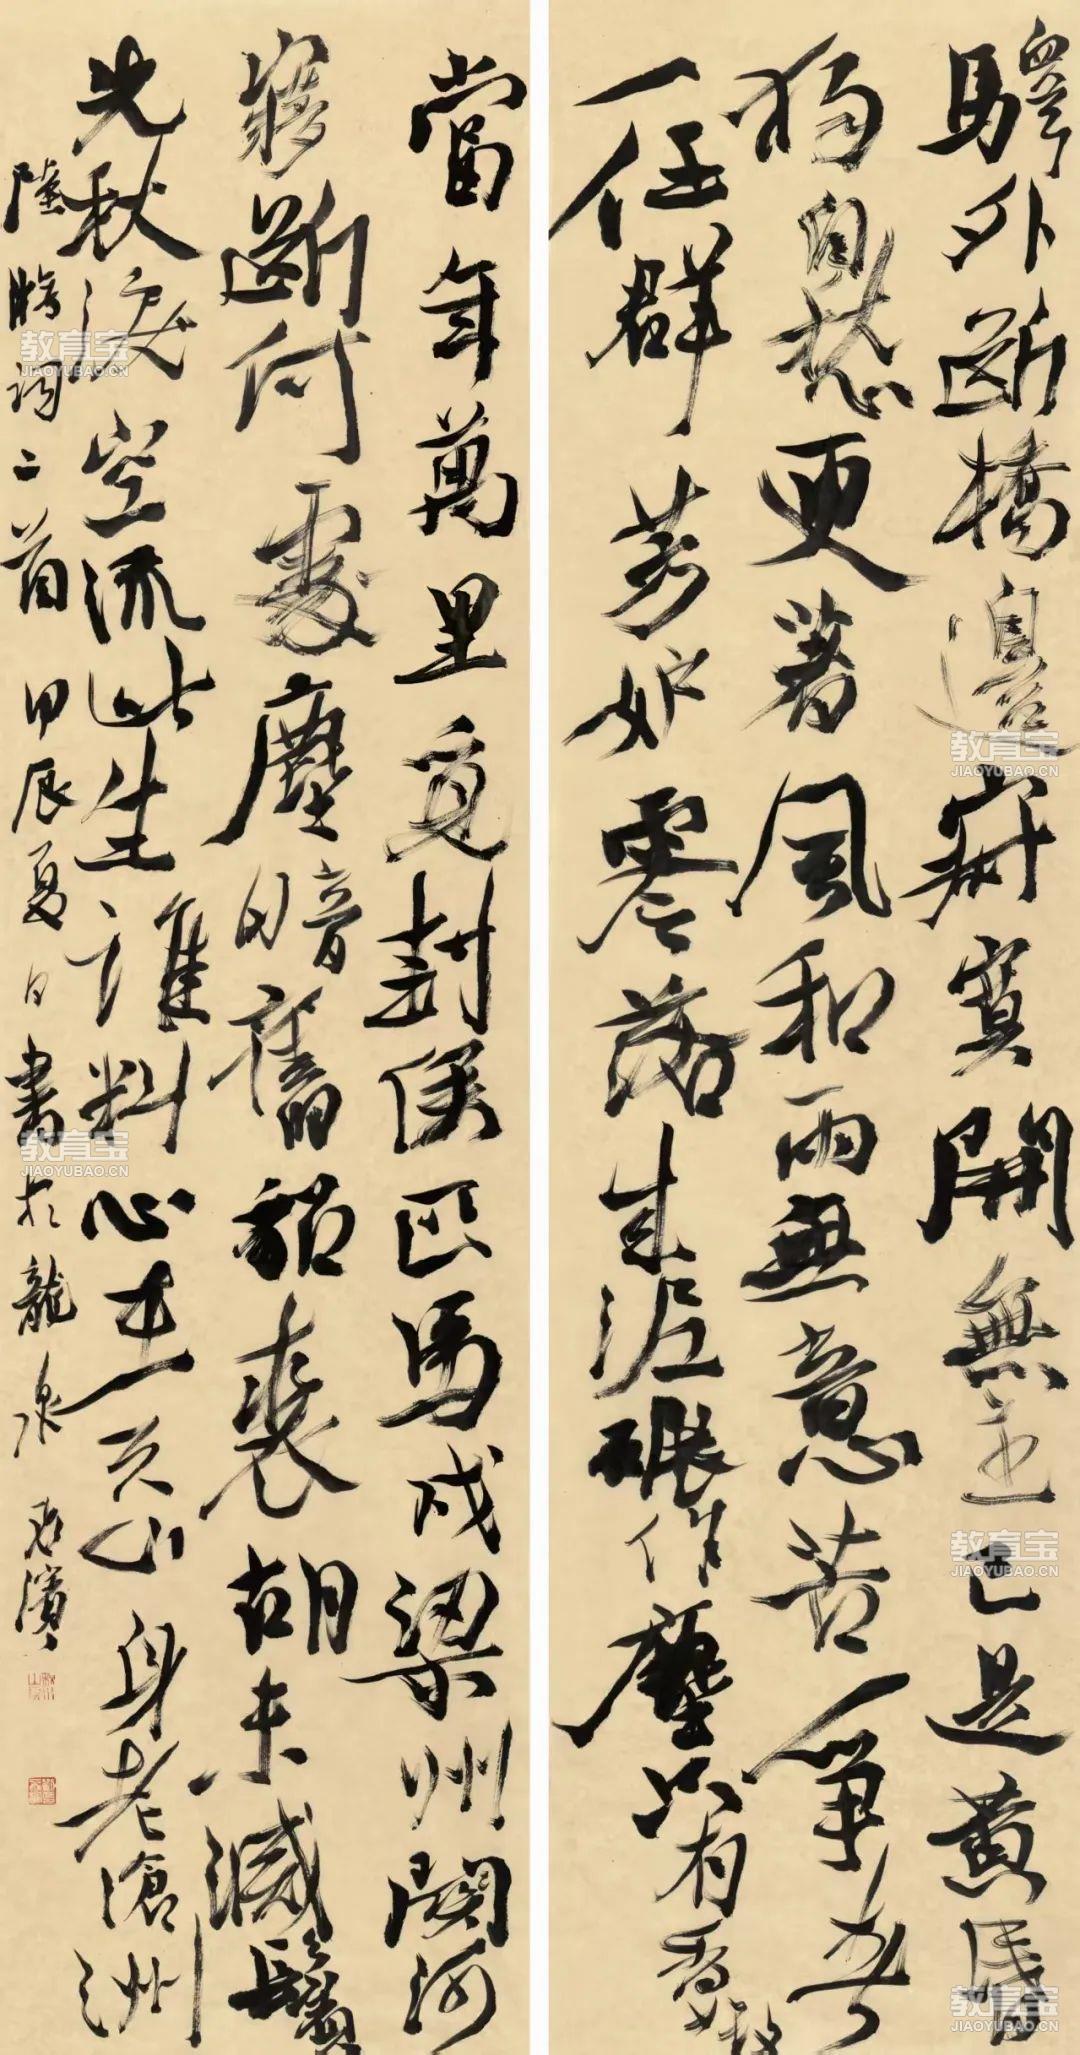 驛外斷橋邊寂寞開無主已是黃昏
獨自愁更著風和雨無意苦爭春
一任群芳妒零落成泥碾作塵只有香如故
當年萬里覓封侯匹馬戍梁州關河
夢斷何處塵暗舊貂裘胡未滅鬢
先秋淚空流此生誰料心在天山身老滄洲
陸詞二首甲辰夏日書於龍泉濱
教育宝
JIAOYUBAO.CN
教育宝
JIAOYUBAO.CN
教育宝
JIAOYUBAO.CN
教育宝
JIAOYUBAO.CN
教育宝
JIAOYUBAO.CN